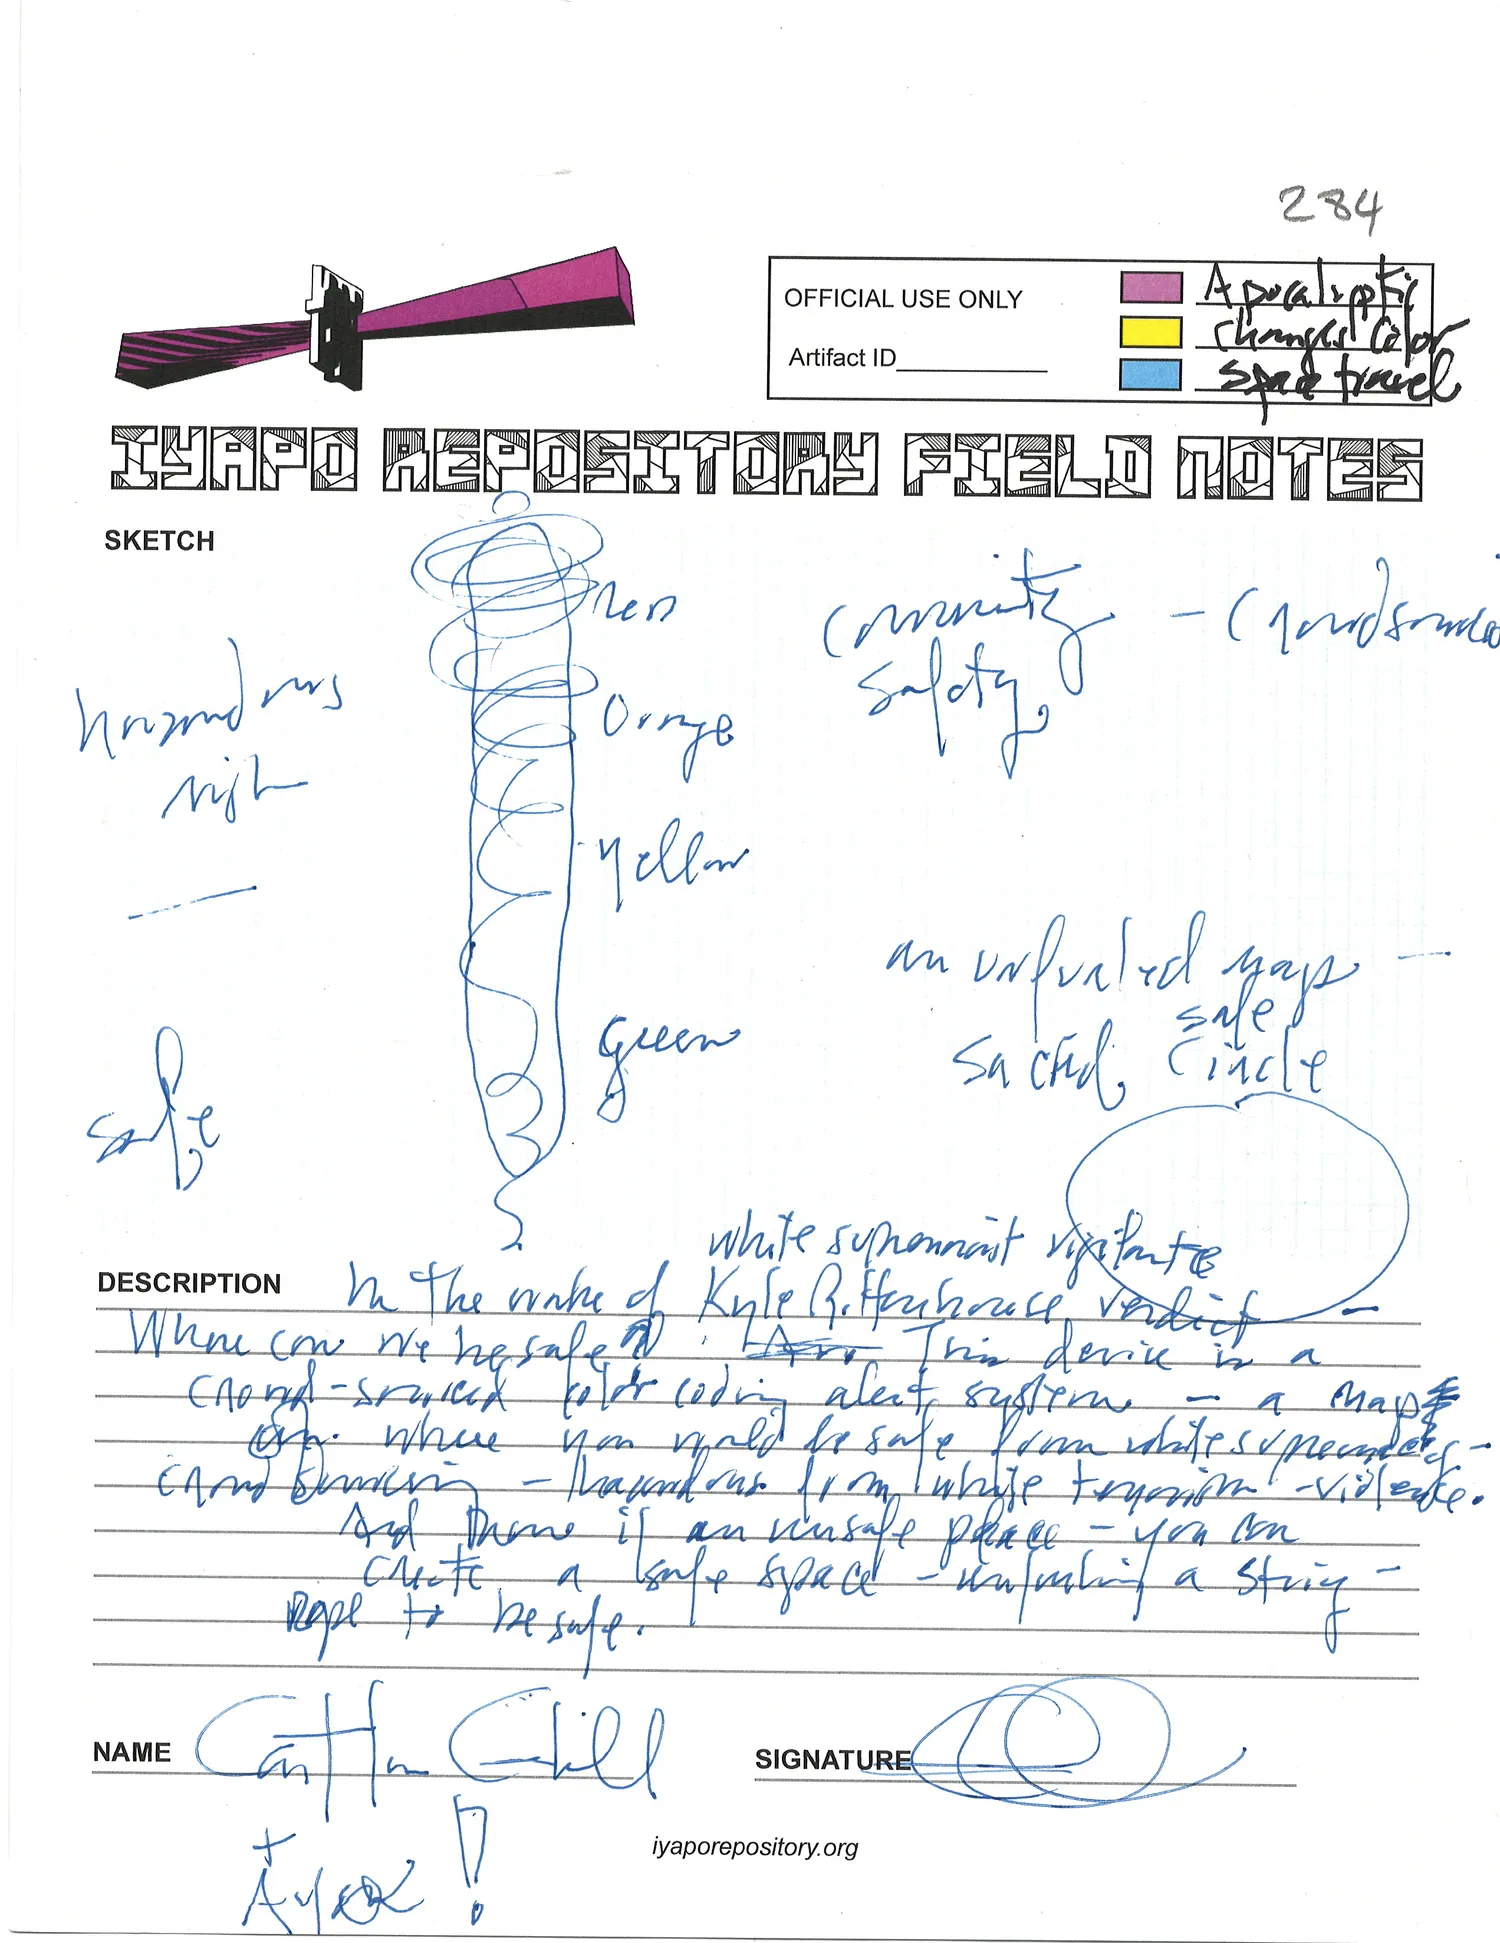 284
OFFICIAL USE ONLY
Artifact ID
Apocalyptic
changes color
space travel
IYAPO REPOSITORY FIELD NOTES
SKETCH
Red
Orange
Yellow
Green
hazardous
high
safe
community - Crowdsourced
safety
an unfurled map -
safe
sacred, circle
DESCRIPTION
white supremacist vigilante
In the wake of Kyle Rittenhouse verdict -
Where can we be safe? This device is a
crowd-sourced color coding alert system - a map
where you would be safe from white supremacy -
crowd sourcing - hazardous from white terrorism - violence.
And then if an unsafe place - you can
create a safe space - unfurling a string -
rope to be safe.
NAME
SIGNATURE
+
iyaporepository.org